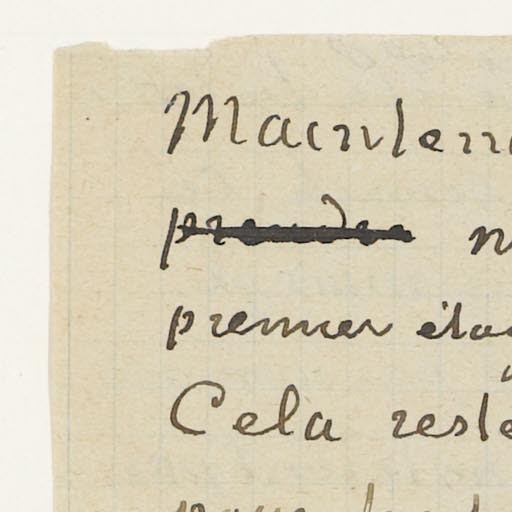 Maintena
prendre n
premier étag
Cela reste
pour